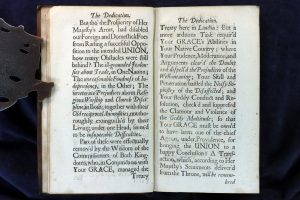 The Dedication.
But tho' the Prosperity of Her
Majesty's Arms, had disabled
our Foreign and Domestick Foes
from Raising a successful Oppo-
sition to the intended UNION,
how many Obstacles were still
behind? The ill-grounded
about Trade, in One Nation; The
of
dependency, in the Other; The
inveterate Prejudices about Reli-
gious Worship and Church Disci-
pline in Both; together with those
Old reciprocal Animosities, not tho-
roughly extinguish'd by their
Living under one Head, seemed
to be insuperable Difficulties.
Part of these were effectually
remov'd by the Wisdom of the
Commissioners of Both King-
doms, who, in Conjunction with
Your GRACE, managed the
Treaty
The Dedication.
Treaty here in London: But a
more arduous Task required
Your GRACE's Abilities in
Your Native Country; where
Your Prudence, Moderation, and
Arguments clear'd the Doubts
and dispell'd the Prejudices of the
Well-meaning; Your Skill and
Penetration baffled the
of the Disaffected; and
Your Steddy Conduct and Re-
solution, check'd and suspended
the Clamour and Violence of
the Giddy Multitude; so that
Your GRACE must be own'd
to have been one of the chief
under Providence, for
bringing the UNION to a
happy Conclusion: A Trans-
action, which, according to Her
Majesty's Sentiments deliver'd
from the Throne, will be remem-
bred